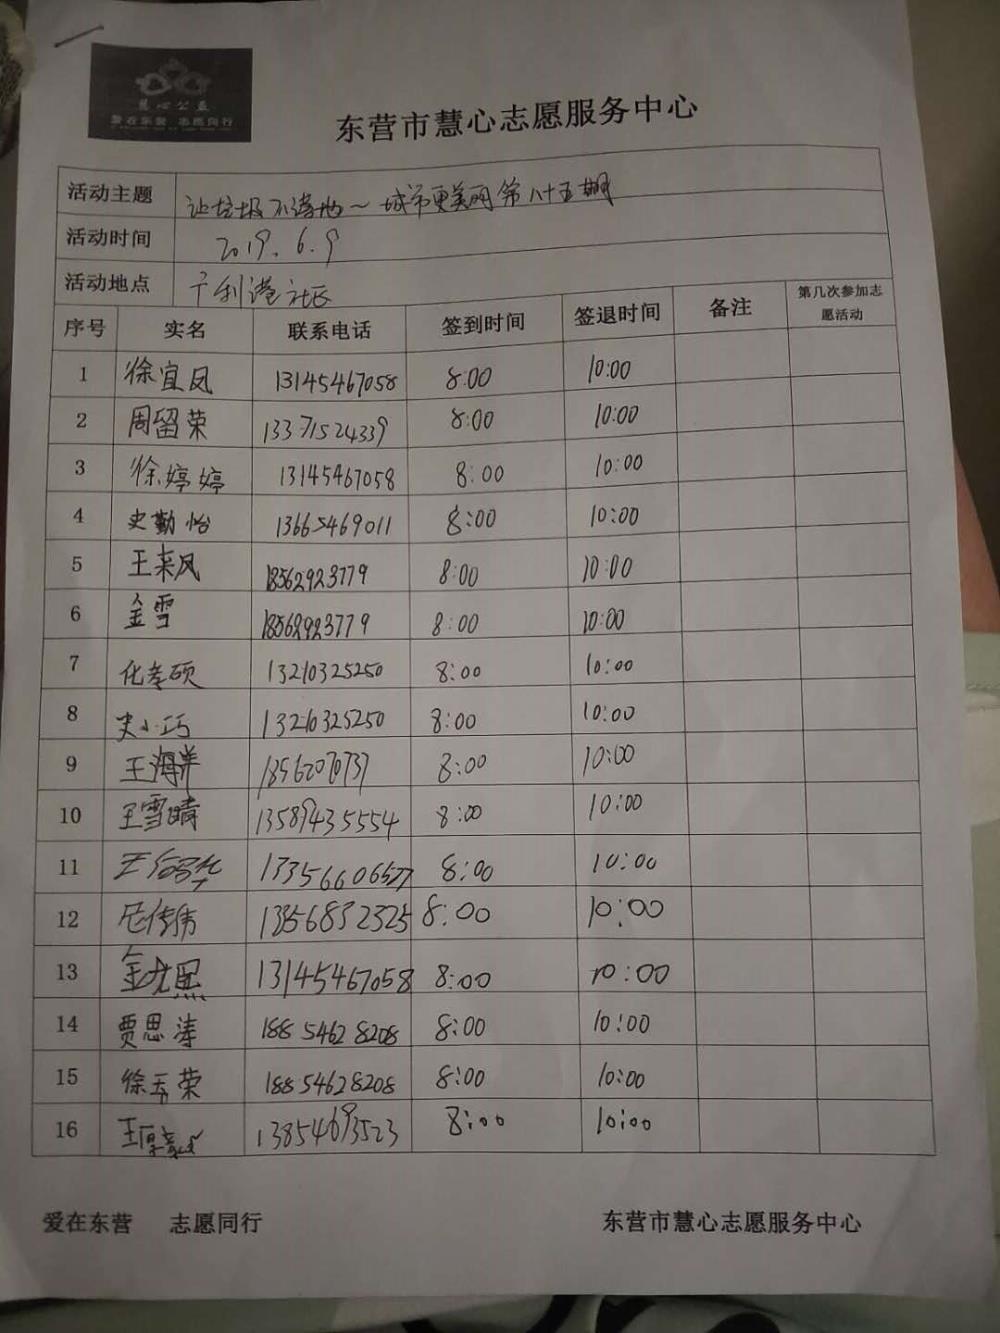 慧心公益
爱在东营 志愿同行
东营市慧心志愿服务中心
活动主题 让垃圾不落地～城市更美丽第八十五期
活动时间 2019.6.9
活动地点 广利港社区
序号 实名 联系电话 签到时间 签退时间 备注 第几次参加志愿活动
1 徐宜凤 13145467058 8:00 10:00
2 周留荣 13371524339 8:00 10:00
3 徐婷婷 13145467058 8:00 10:00
4 史勤怡 13665469011 8:00 10:00
5 王来凤 18562923779 8:00 10:00
6 金雪 18562923779 8:00 10:00
7 化孝硕 13210325250 8:00 10:00
8 史小巧 13210325250 8:00 10:00
9 王海洋 8:00 10:00
10 王雪晴 13589435554 8:00 10:00
11 8:00 10:00
12 8:00 10:00
13 13145467058 8:00 10:00
14 贾思涛 18854628208 8:00 10:00
15 徐秀荣 18854628208 8:00 10:00
16 13854693523 8:00 10:00
爱在东营 志愿同行 东营市慧心志愿服务中心